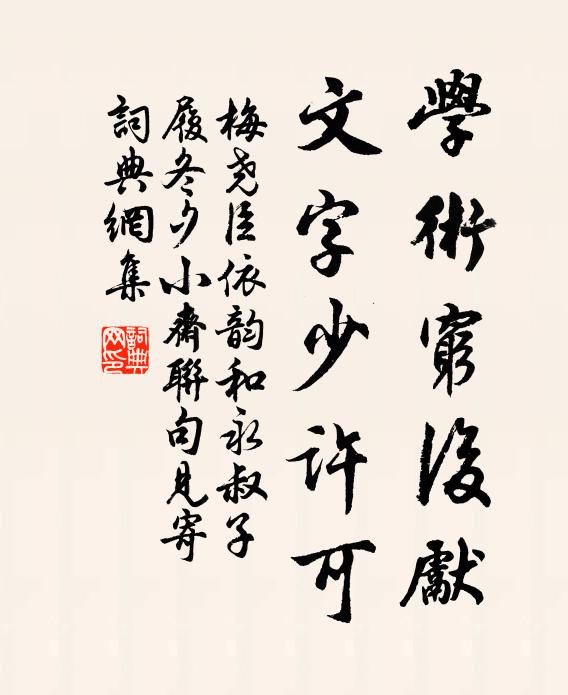 學術窮後獻
文字少許可
梅尧臣依韵和永叔子
履冬夕小齋聯句見寄
詞典網集
詞典网印